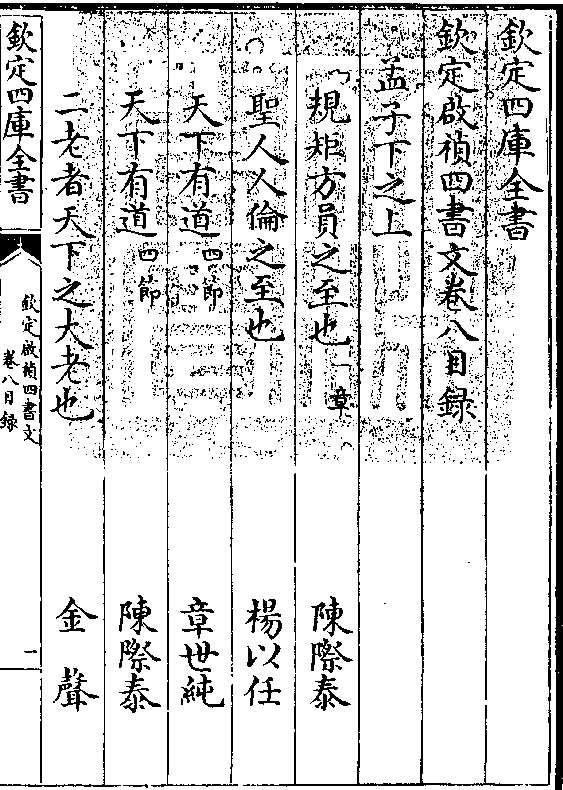 欽定四庫全書
欽定啟禎四書文卷八目録
孟子下之上
規矩方員之至也一章 陳際泰
聖人人倫之至也 楊以任
天下有道四節 章世純
天下有道四節 陳際泰
二老者天下之大老也 金聲
欽定四庫全書
欽定啟禎四書文
卷八目録
一